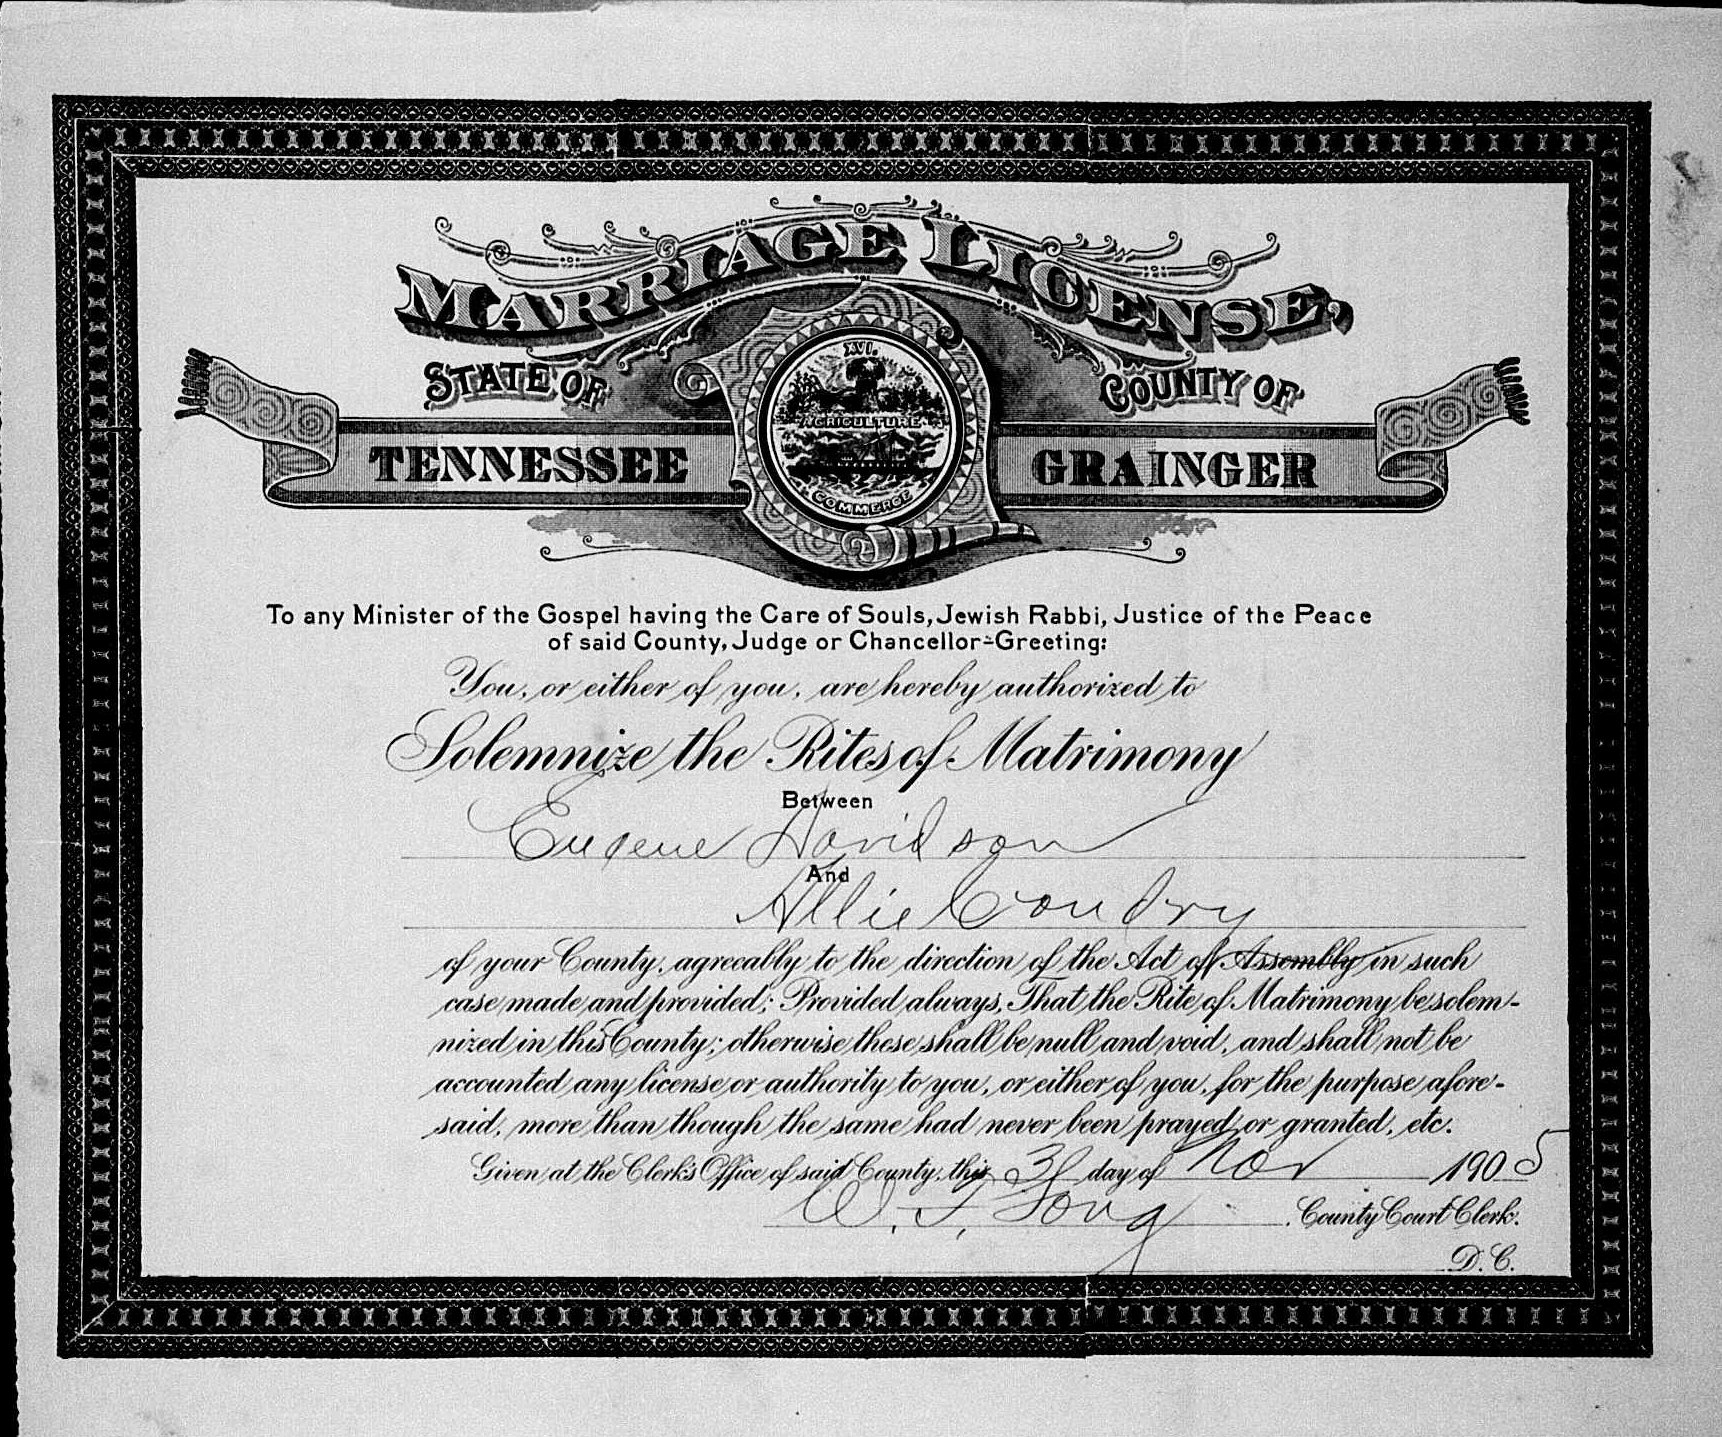 MARRIAGE LICENSE,
STATE OF
COUNTY OF
TENNESSEE
GRAINGER
XVI.
AGRICULTURE
COMMERCE
To any Minister of the Gospel having the Care of Souls, Jewish Rabbi, Justice of the Peace
of said County, Judge or Chancellor-Greeting:
You, or either of you, are hereby authorized to
Solemnize the Rites of Matrimony
Between
Eugene Davidson
And
Allie Coudry
of your County, agreeably to the direction of the Act of Assembly in such
case made and provided; Provided always, That the Rite of Matrimony be solem-
nized in this County; otherwise these shall be null and void, and shall not be
accounted any license or authority to you, or either of you, for the purpose afore-
said, more than though the same had never been prayed or granted, etc.
Given at the Clerk's Office of said County, this day of Nov 1905
County Court Clerk.
D. C.